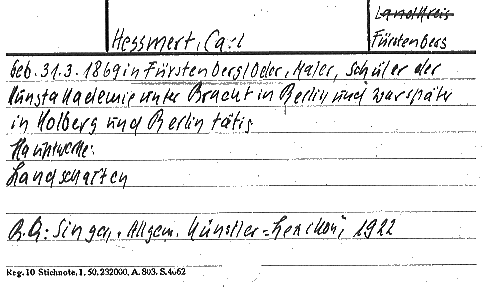 Landkreis
Hessmert, Carl
Fürstenberg
geb. 31.3.1869 in Fürstenberg/Oder, Maler, Schüler der
Kunstakademie unter Bracht in Berlin und war später
in Kolberg und Berlin tätig
Hauptwerke:
Landschaften
Singer, Allgem. Künstler=Lexikon, 1922
Reg. 10 Stichnote, 1, 50, 232000, A. 803. S. 4062